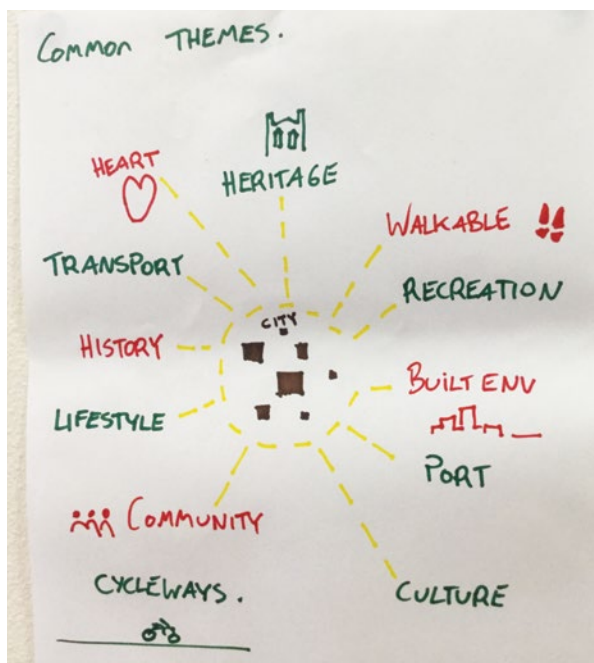 COMMON THEMES.
HEART
HERITAGE
WALKABLE
TRANSPORT
RECREATION
CITY
HISTORY
BUILT ENV
LIFESTYLE
PORT
COMMUNITY
CYCLEWAYS.
CULTURE